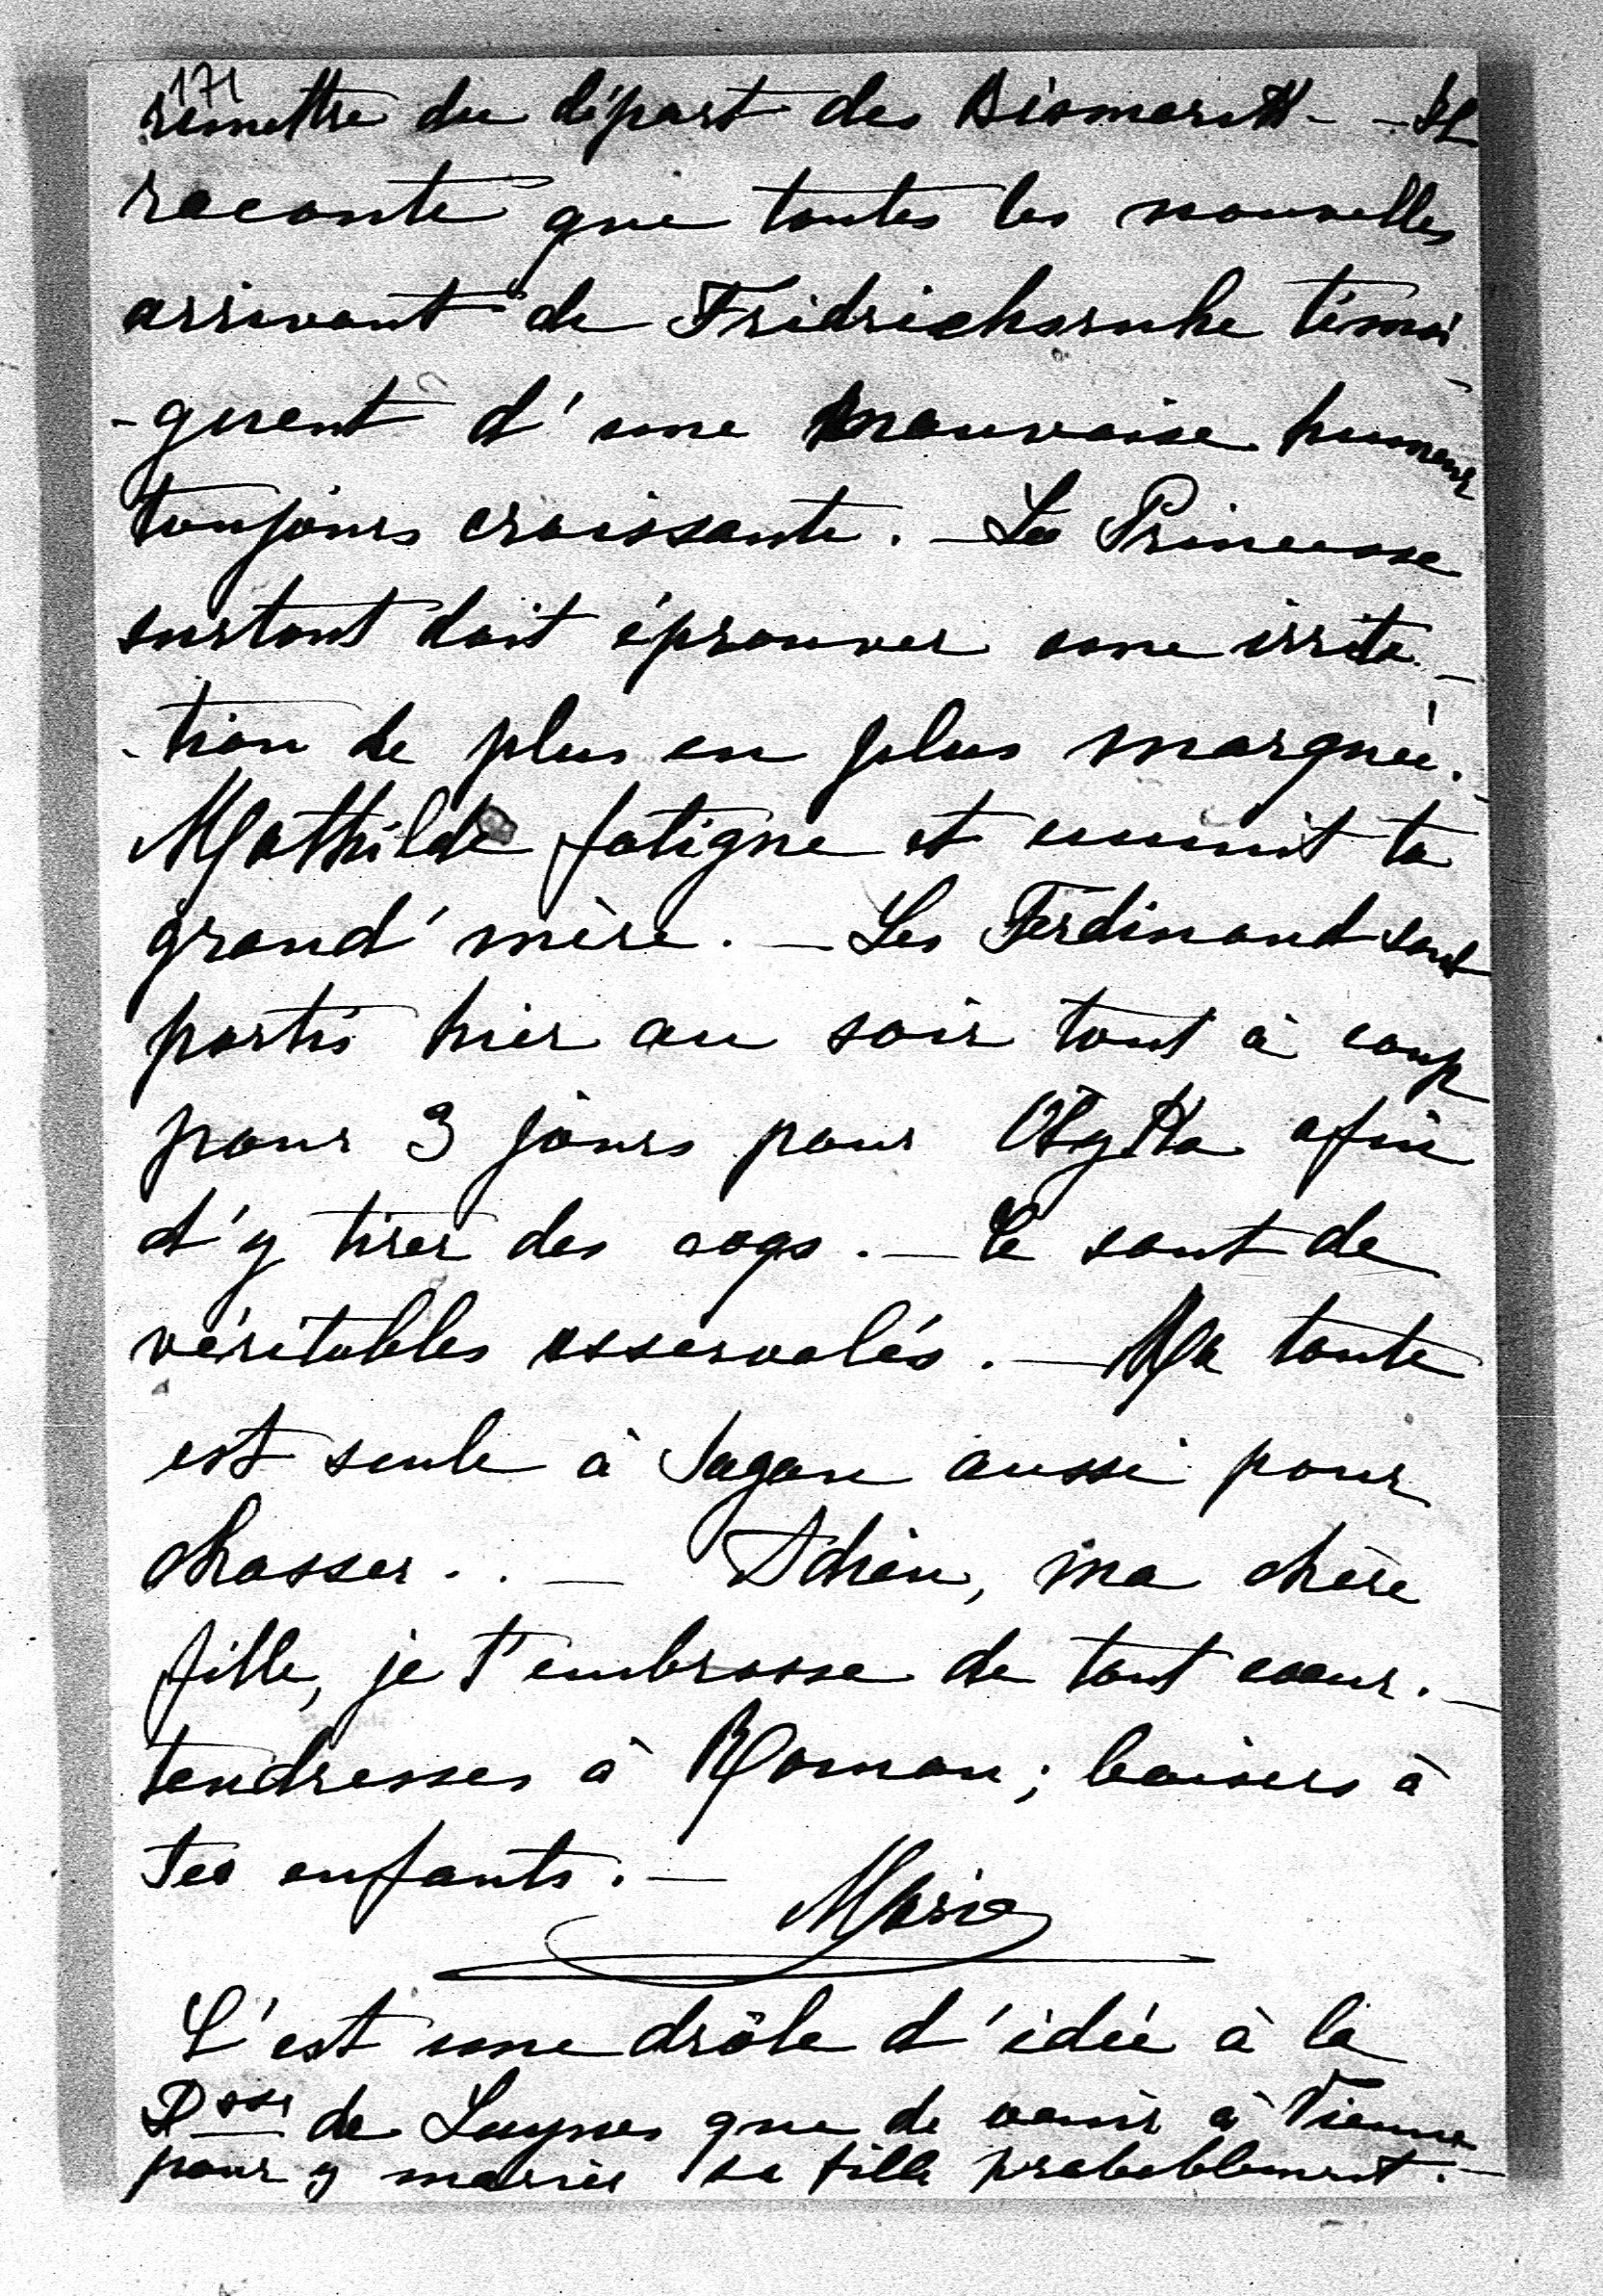 171
remettre du départ des Bismarck - - Il
raconte que toutes les nouvelles
arrivant de Fridrichsruhe témoi
-gnent d'une mauvaise humeur
toujours croissante. - La Princesse
surtout doit éprouver une irrita-
-tion de plus en plus marquée. -
Mathilde fatigue et ennuit ta
grand'mère. - Les Ferdinand sont
partis hier au soir tout à coup
pour 3 jours pour afin
d'y tirer des coqs. - Ce sont de
véritables. - Ma tante
est seule à Sagan aussi pour
chasser. . - Adieu, ma chère
fille, je t'embrasse de tout coeur. -
tendresses à Roman; baisers à
tes enfants. -
Marie
C'est une drôle d'idée à la
Dsse de Luynes que de venir à Vienne
pour y marier sa fille probablement. -